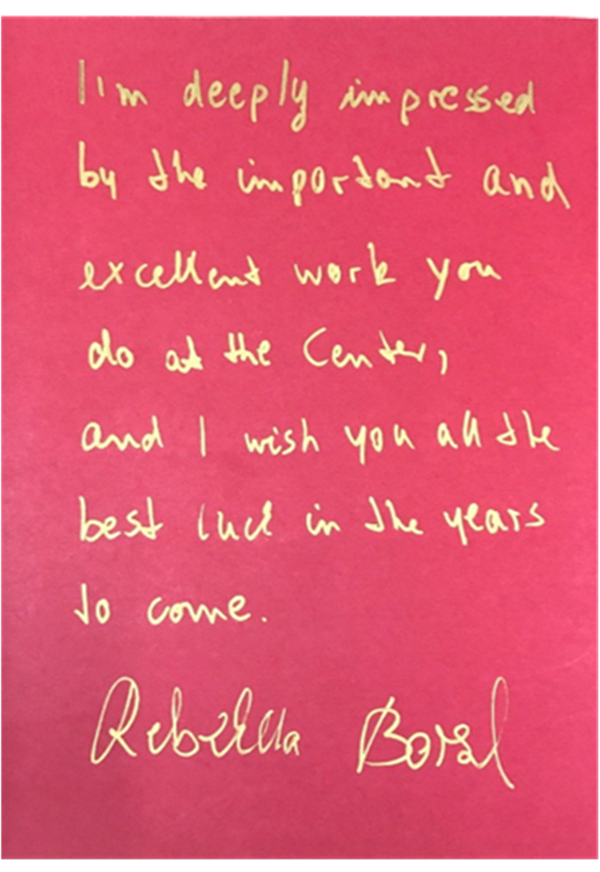 I'm deeply impressed
by the important and
excellent work you
do at the Center,
and I wish you all the
best luck in the years
to come.